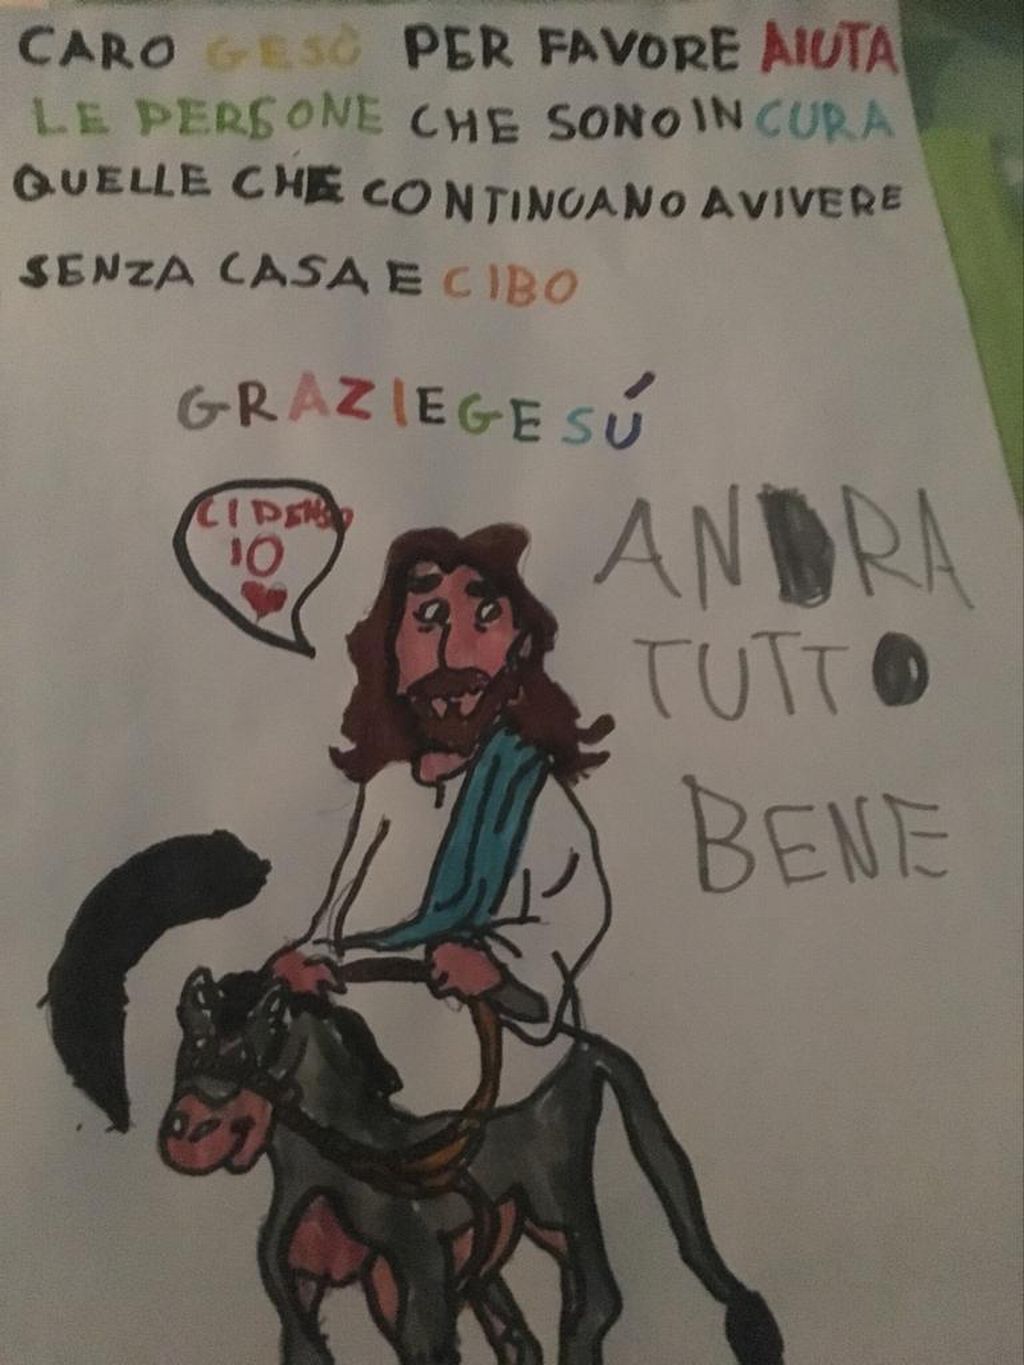 CARO GESÙ PER FAVORE AIUTA
LE PERSONE CHE SONO IN CURA
QUELLE CHE CONTINUANO A VIVERE
SENZA CASA E CIBO
GRAZIE GESÚ
CI PENSO
IO
ANDRA
TUTTO
BENE